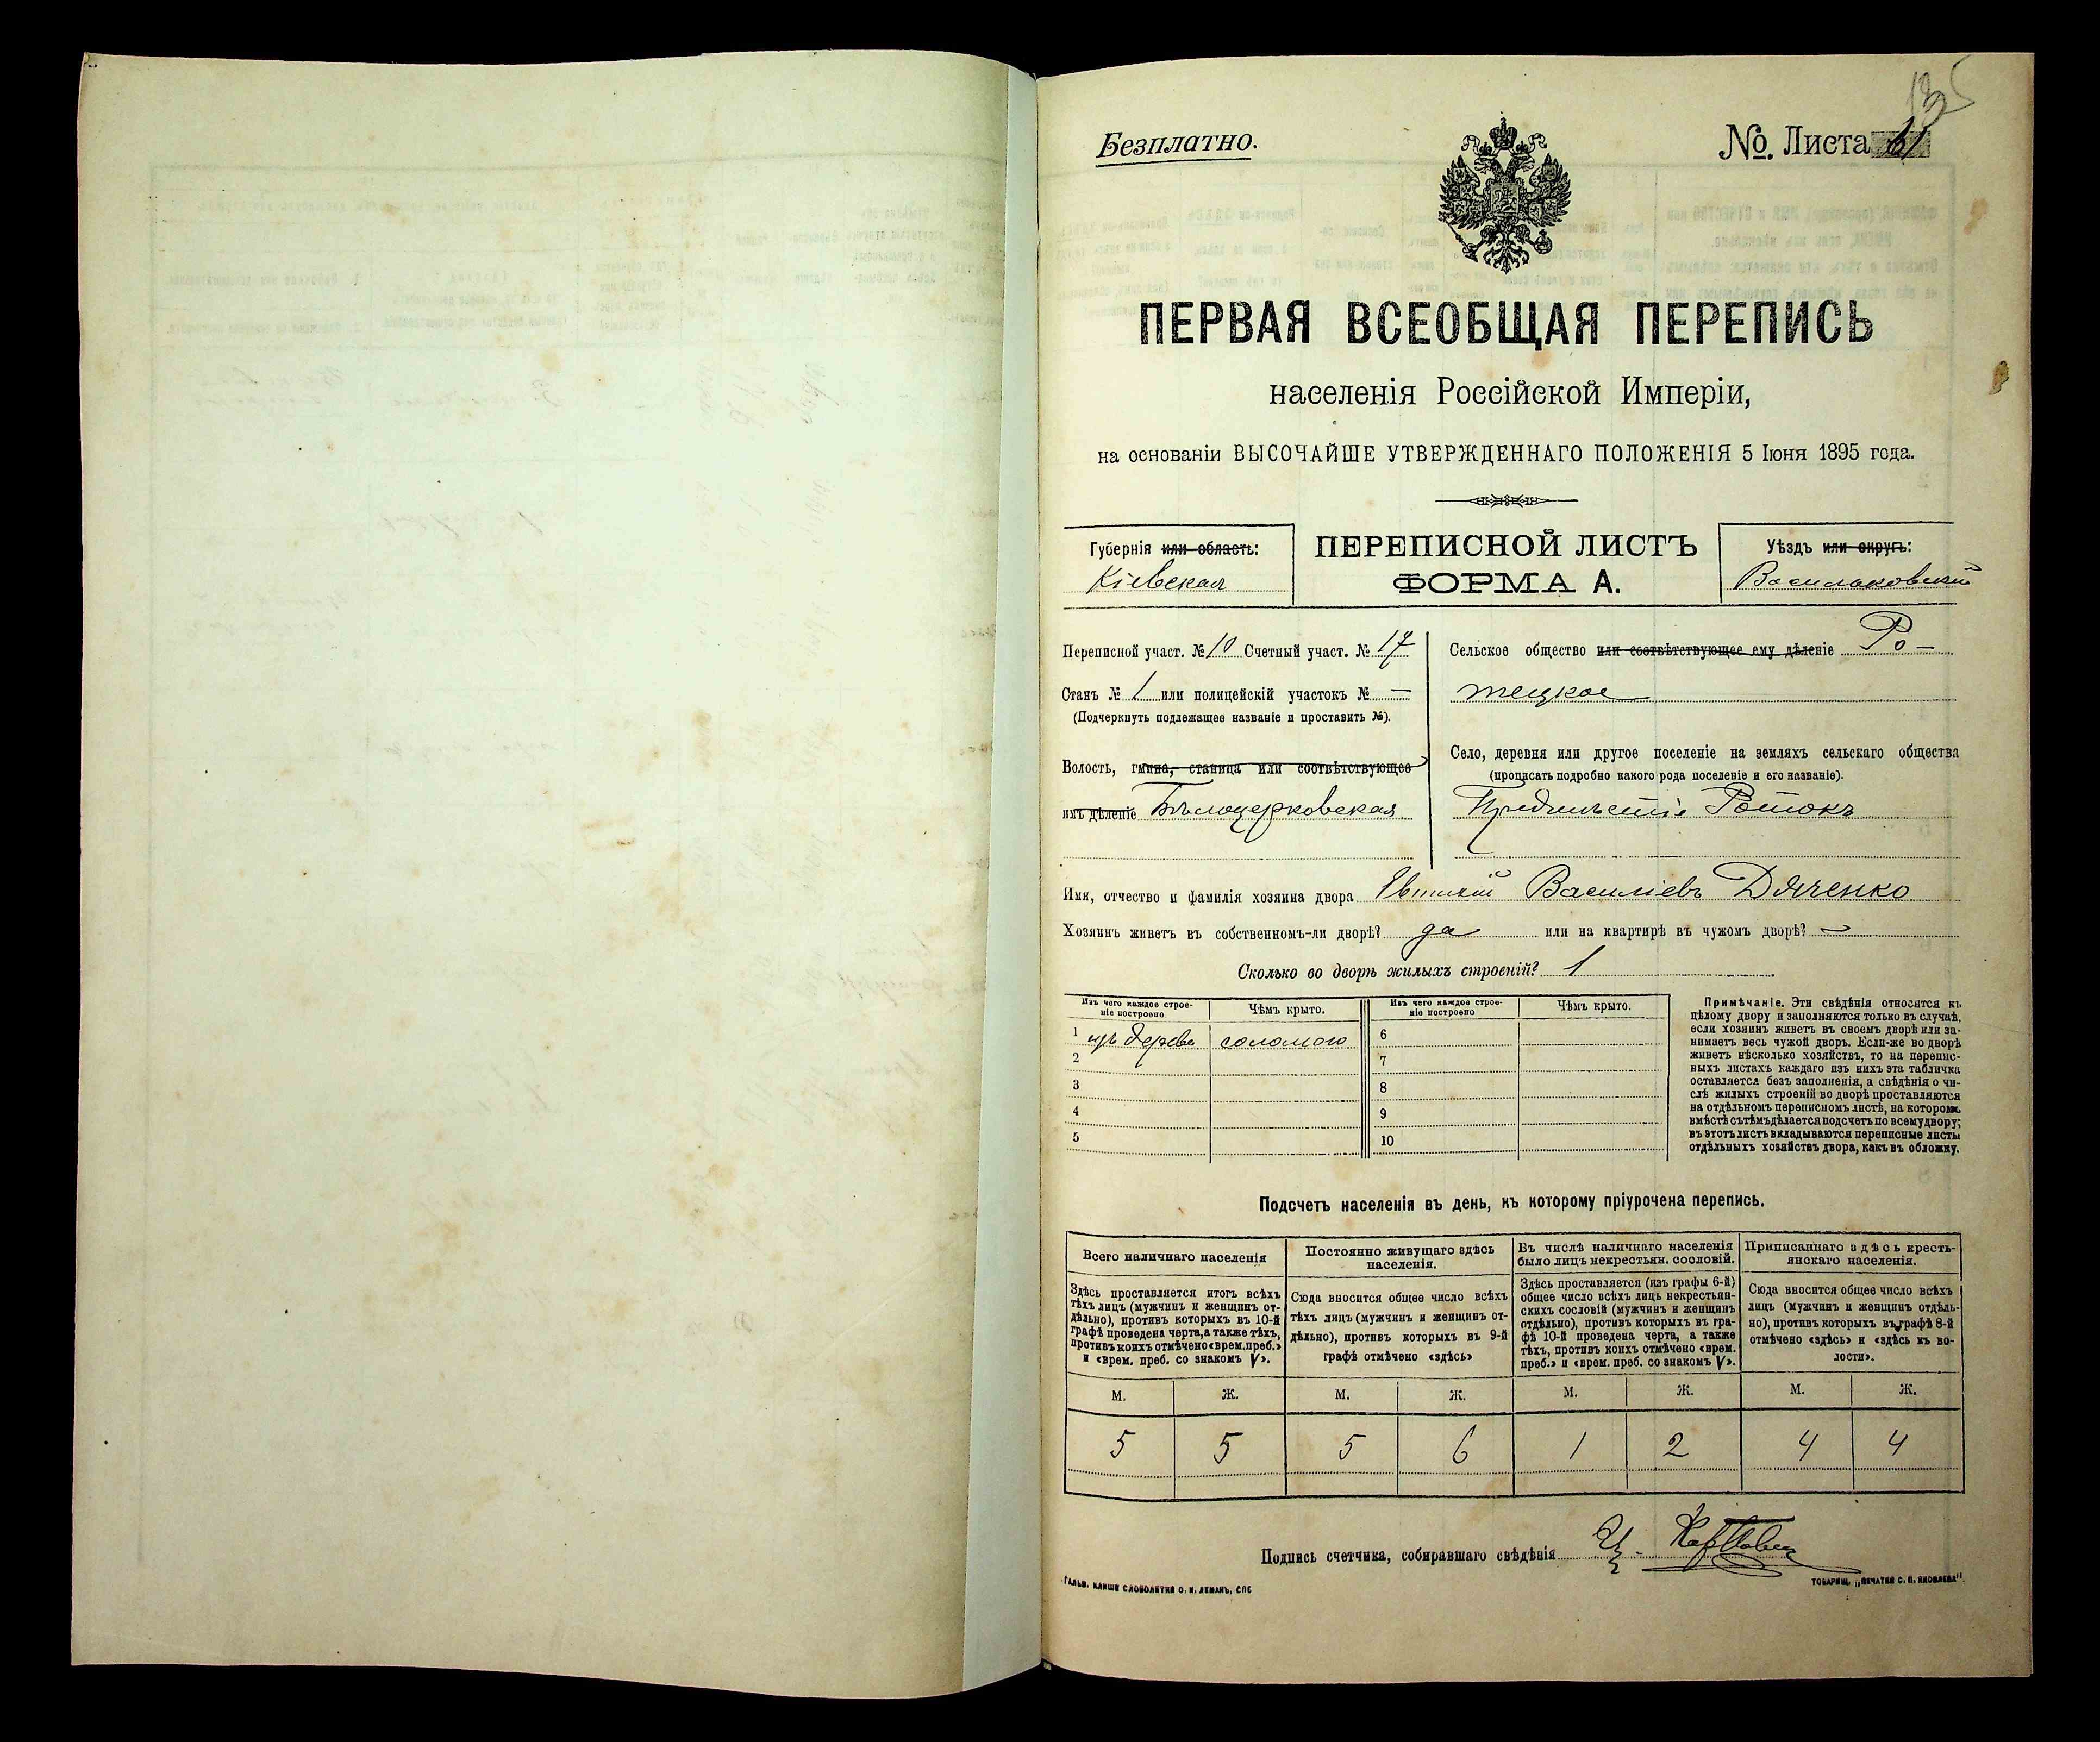 135
Безплатно.
№. Листа 61
ПЕРВАЯ ВСЕОБЩАЯ ПЕРЕПИСЬ
населенія Россійской Имперіи,
на основаніи ВЫСОЧАЙШЕ УТВЕРЖДЕННАГО ПОЛОЖЕНІЯ 5 Іюня 1895 года.
Губернія или область:
Кіевская
ПЕРЕПИСНОЙ ЛИСТЪ
ФОРМА А.
Уѣздъ или округъ:
Васильковскій
Переписной участ. № 10 Счетный участ. № 17
Станъ № 1 или полицейскій участокъ № —
(Подчеркнуть подлежащее названіе и проставить №).
Волость, гмина, станица или соотвѣтствующее
имъ дѣленіе Бѣлоцерковская
Сельское общество или соотвѣтствующее ему дѣленіе Ро-
тецкое
Село, деревня или другое поселеніе на земляхъ сельскаго общества
(прописать подробно какого рода поселеніе и его названіе).
Предмѣстіе Ротокъ
Имя, отчество и фамилія хозяина двора Евтихій Василіевъ Дяченко
Хозяинъ живетъ въ собственномъ-ли дворѣ? да или на квартирѣ въ чужомъ дворѣ? —
Сколько во дворѣ жилыхъ строеній? 1
Изъ чего каждое строе-
ніе построено
Чѣмъ крыто.
Изъ чего каждое строе-
ніе построено
Чѣмъ крыто.
1 изъ дерева соломою 6
2 7
3 8
4 9
5 10
Примѣчаніе. Эти свѣдѣнія относятся къ
цѣлому двору и заполняются только въ случаѣ,
если хозяинъ живетъ въ своемъ дворѣ или за-
нимаетъ весь чужой дворъ. Если-же во дворѣ
живетъ нѣсколько хозяйствъ, то на перепис-
ныхъ листахъ каждаго изъ нихъ эта табличка
оставляется безъ заполненія, а свѣдѣнія о чи-
слѣ жилыхъ строеній во дворѣ проставляются
на отдѣльномъ переписномъ листѣ, на которомъ
вмѣстѣ съ тѣмъ дѣлается подсчетъ по всему двору;
въ этотъ листъ вкладываются переписные листы
отдѣльныхъ хозяйствъ двора, какъ въ обложку.
Подсчетъ населенія въ день, къ которому пріурочена перепись.
Всего наличнаго населенія
Здѣсь проставляется итогъ всѣхъ
тѣхъ лицъ (мужчинъ и женщинъ от-
дѣльно), противъ которыхъ въ 10-й
графѣ проведена черта, а также тѣхъ,
противъ коихъ отмѣчено «врем. преб.»
и «врем. преб. со знакомъ V».
Постоянно живущаго здѣсь
населенія.
Сюда вносится общее число всѣхъ
тѣхъ лицъ (мужчинъ и женщинъ от-
дѣльно), противъ которыхъ въ 9-й
графѣ отмѣчено «здѣсь»
Въ числѣ наличнаго населенія
было лицъ некрестьян. сословій.
Здѣсь проставляется (изъ графы 6-й)
общее число всѣхъ лицъ некрестьян-
скихъ сословій (мужчинъ и женщинъ
отдѣльно), противъ которыхъ въ гра-
фѣ 10-й проведена черта, а также
тѣхъ, противъ коихъ отмѣчено «врем.
преб.» и «врем. преб. со знакомъ V».
Приписаннаго здѣсь кресть-
янскаго населенія.
Сюда вносится общее число всѣхъ
лицъ (мужчинъ и женщинъ отдѣль-
но), противъ которыхъ въ графѣ 8-й
отмѣчено «здѣсь» и «здѣсь къ во-
лости».
М. Ж. М. Ж. М. Ж. М. Ж.
5 5 5 6 1 2 4 4
Подпись счетчика, собиравшаго свѣдѣнія
ГАЛЬВ. КЛИШЕ СЛОВОЛИТНЯ О. И. ЛЕМАНЪ, СПБ
ТОВАРИЩ. „ПЕЧАТНЯ С. П. ЯКОВЛЕВА".